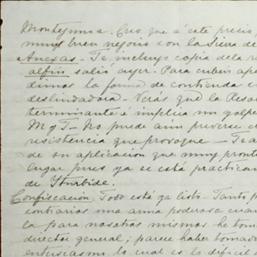 Montejunia. Creo que á este precio
muy buen negocio con la Sierra de
Anexas. Te incluyo copia de la r
al fin salió ayer. Para cubrir ape
dimos la forma de contienda e
deslindadora. Verás que la Reso
terminante é implica un golpe
M y T - No puede aun preverse
resistencia que provoque -
de su aplicacion que muy pront
lugar pues ya se está practican
de Iturbide.
Confiscacion. Todo está ya listo. Tanto p
contiarios una arma poderosa cuan
la para nosotros mismos he tom
director general; parece haber tomad
lo cual es lo dificil